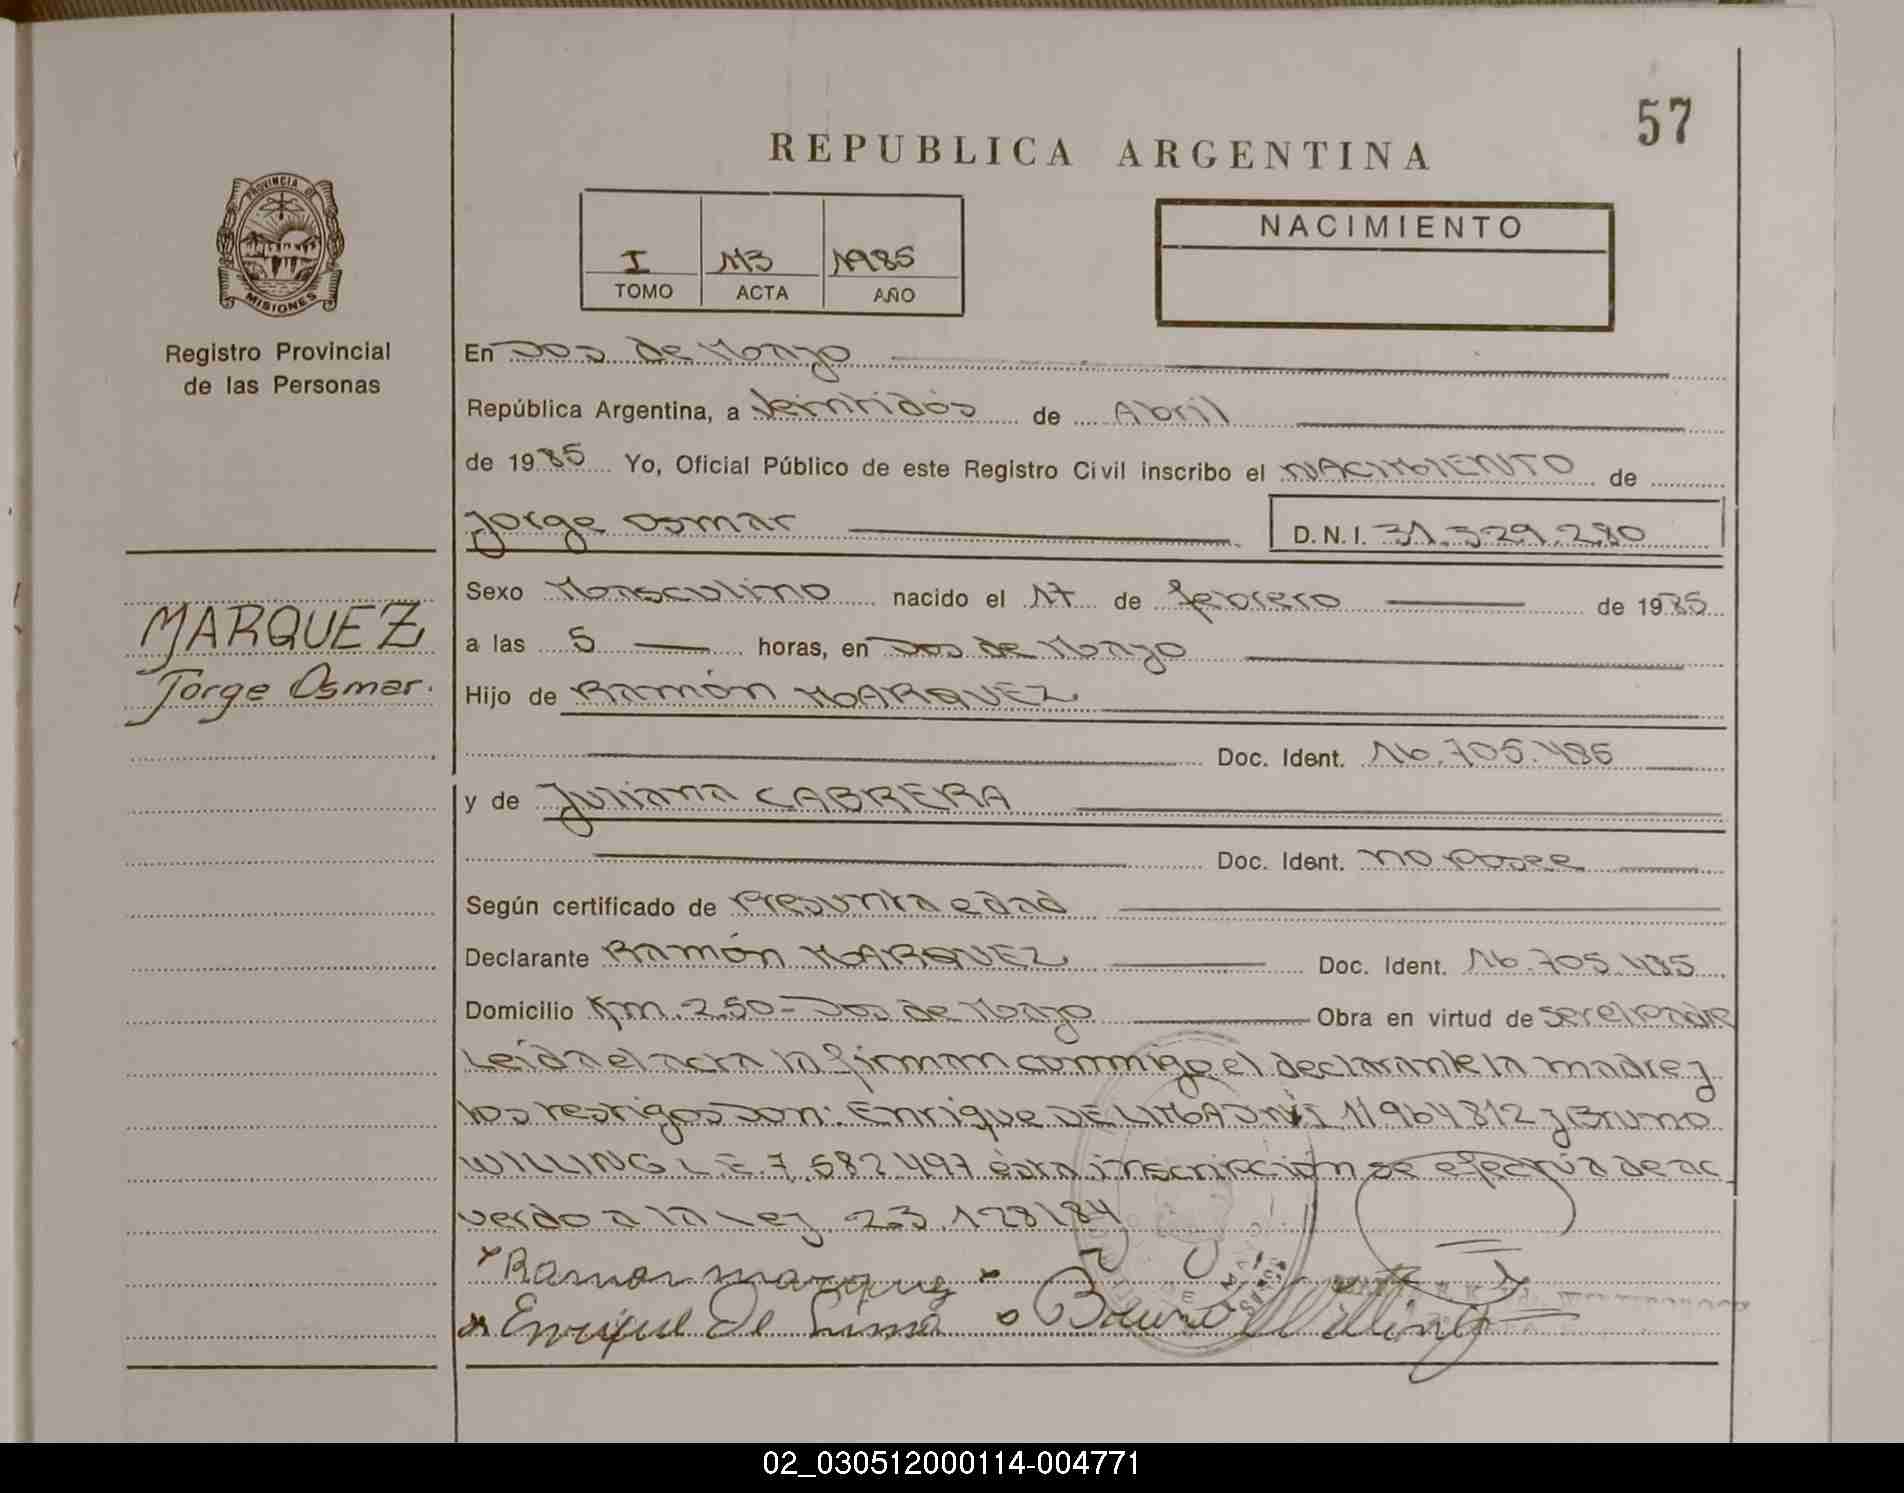 57
REPUBLICA ARGENTINA
PROVINCIA DE
MISIONES
Registro Provincial
de las Personas
I 113 1985
TOMO ACTA AÑO
NACIMIENTO
En Dos de Mayo
República Argentina, a Veintidós de Abril
de 1985 Yo, Oficial Público de este Registro Civil inscribo el NACIMIENTO de
Jorge Osmar D.N.I. 31.329.280
MARQUEZ
Jorge Osmar.
Sexo Masculino nacido el 17 de febrero de 1985
a las 5 horas, en Dos de Mayo
Hijo de Ramón MARQUEZ
Doc. Ident. 16.705.485
y de Juliana CABRERA
Doc. Ident. no posee
Según certificado de Presunta edad
Declarante Ramón MARQUEZ Doc. Ident. 16.705.485
Domicilio Km. 250 - Dos de Mayo Obra en virtud de ser el Padre
Leída el acta la firman conmigo el declarante la madre y
los testigos Don: Enrique DE LIMA DNI 11964812 y Bruno
WILLING L.E. 7.582.497 esta inscripción se efectúa de ac
uerdo a la Ley 23.128/84
Ramon marquez
Enrique De Lima Bruno Willing
02_030512000114-004771